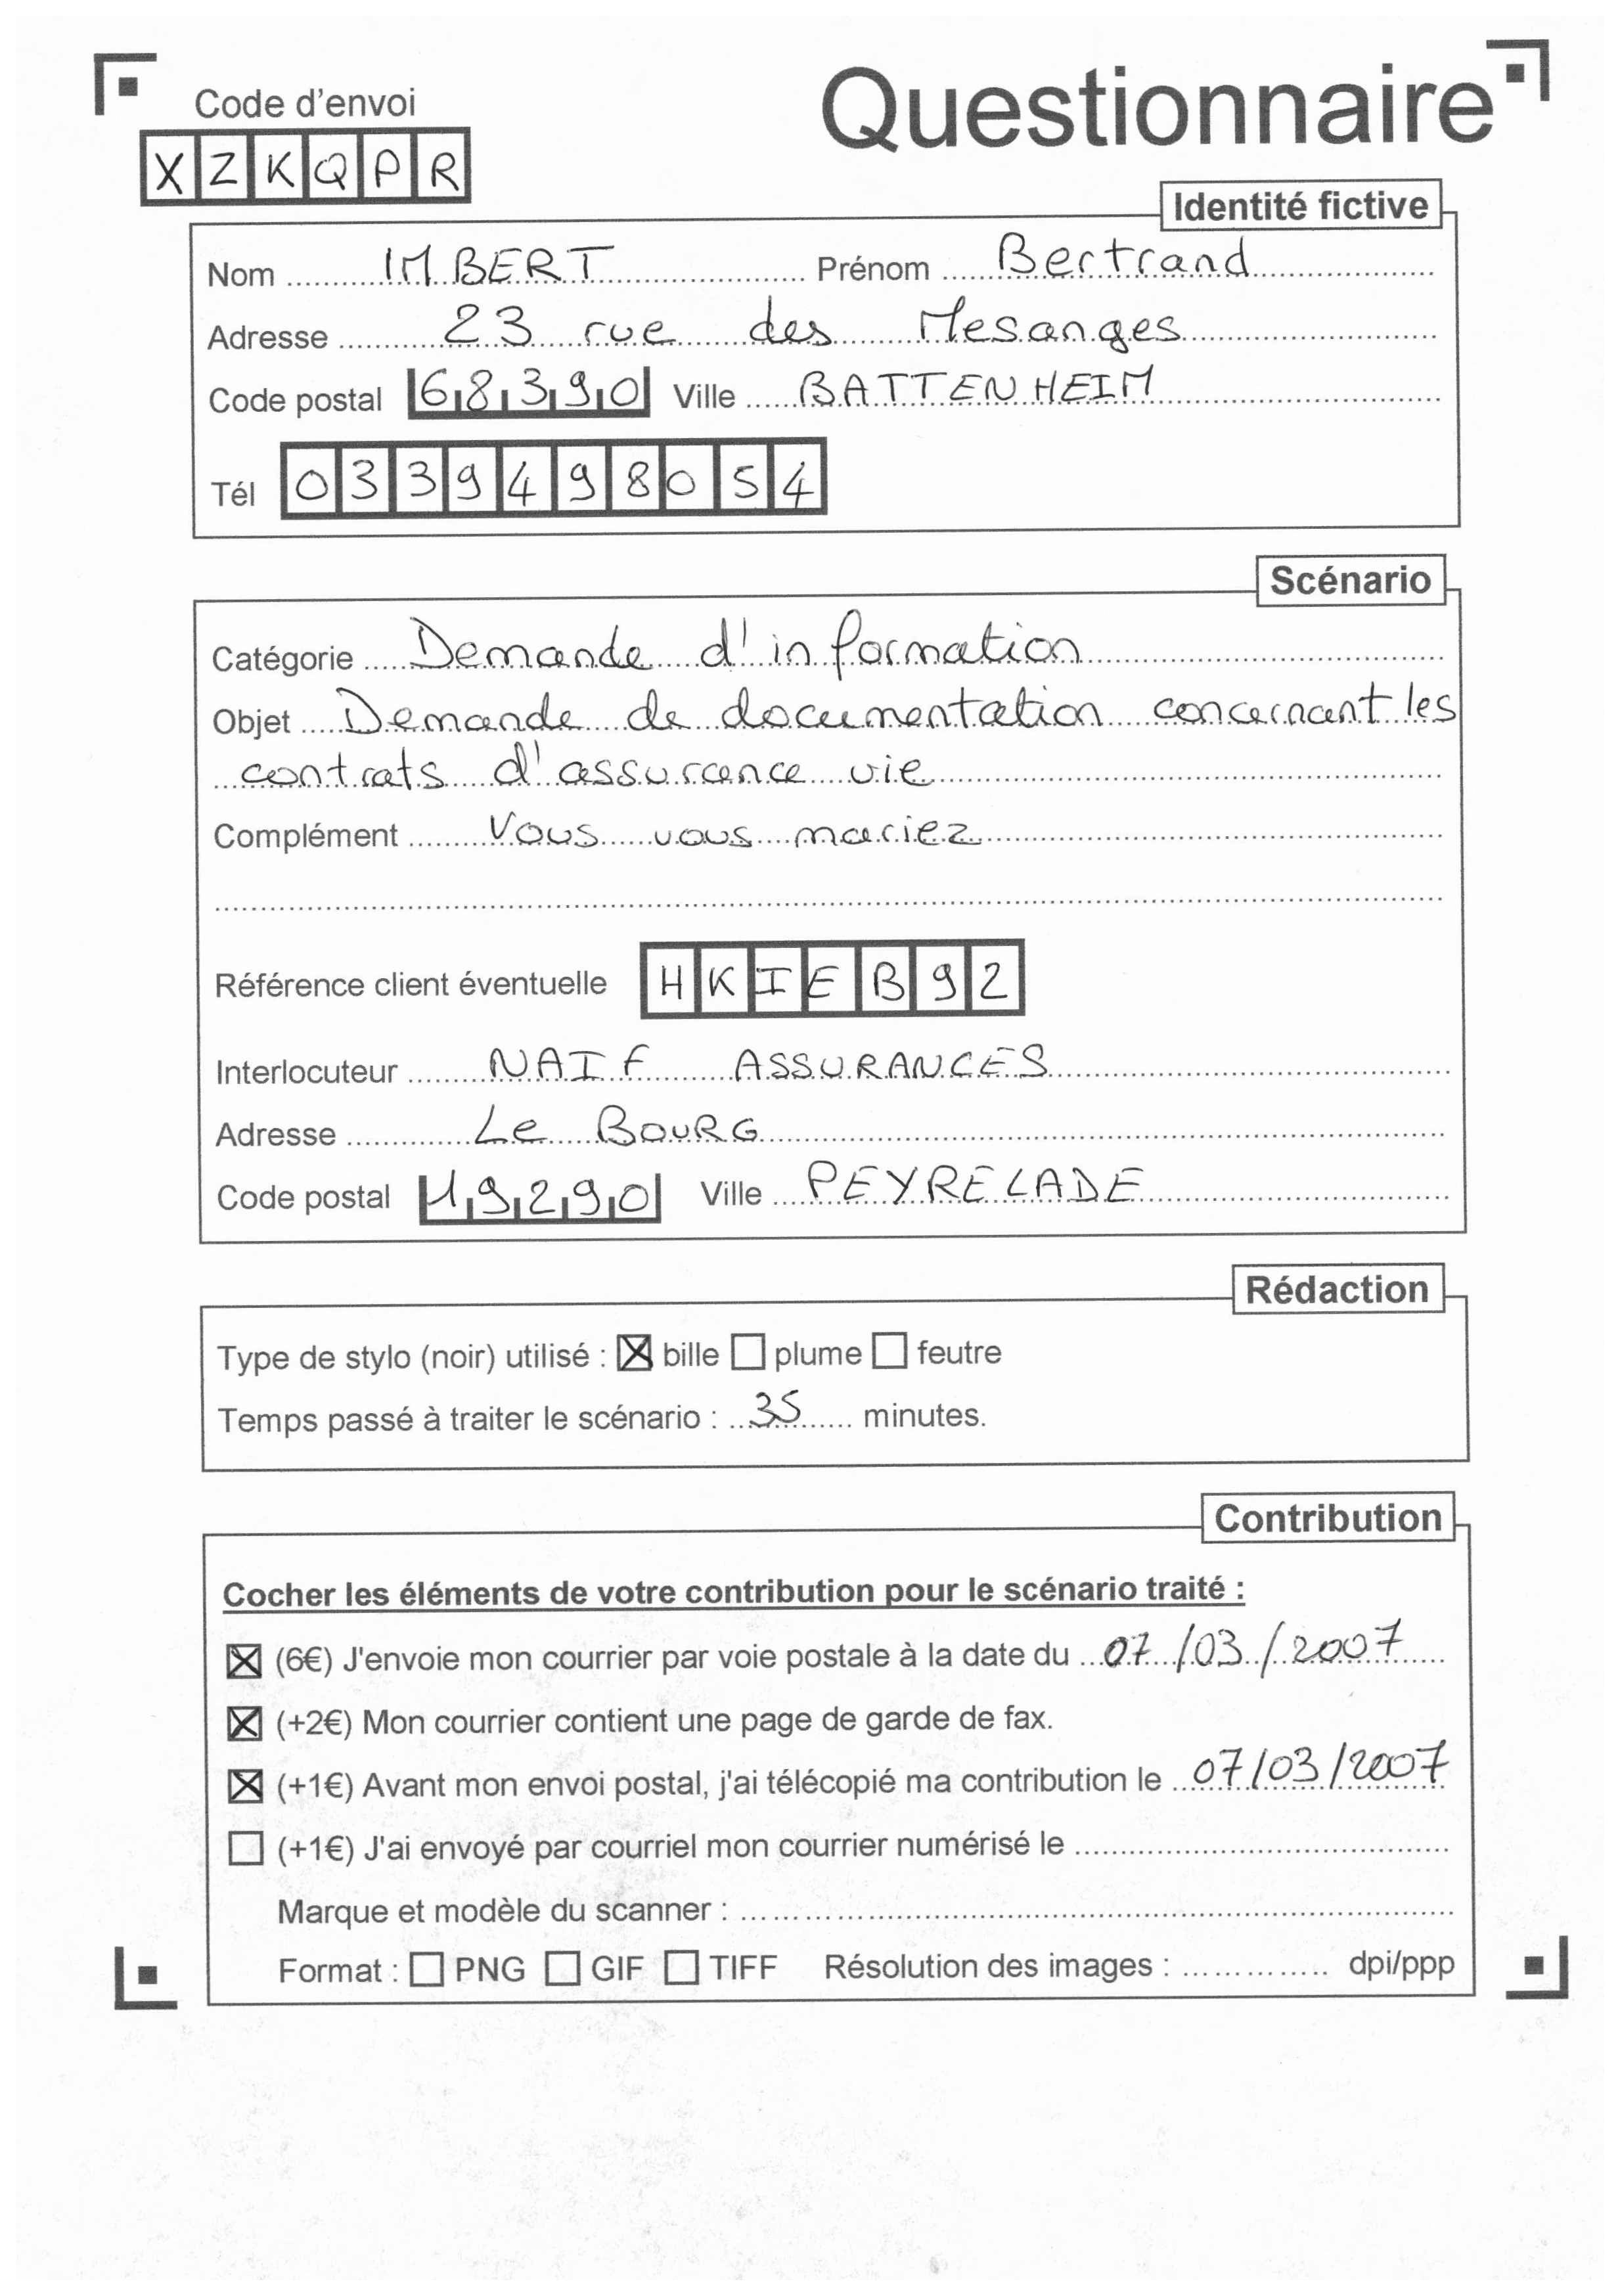 Questionnaire
Code d'envoi
XZKQPR
Identité fictive
Nom IMBERT Prénom Bertrand
Adresse 23 rue des Mesanges
Code postal 68390 Ville BATTENHEIM
Tél 0339498054
Scénario
Catégorie Demande d'information
Objet Demande de documentation concernant les
contrats d'assurance vie
Complément Vous vous mariez
Référence client éventuelle HKIEB92
Interlocuteur NAIF ASSURANCES
Adresse Le BOURG
Code postal 19290 Ville PEYRELADE
Rédaction
Type de stylo (noir) utilisé : ☒ bille ☐ plume ☐ feutre
Temps passé à traiter le scénario : 35 minutes.
Contribution
Cocher les éléments de votre contribution pour le scénario traité :
☒ (6€) J'envoie mon courrier par voie postale à la date du 07/03/2007
☒ (+2€) Mon courrier contient une page de garde de fax.
☒ (+1€) Avant mon envoi postal, j'ai télécopié ma contribution le 07/03/2007
☐ (+1€) J'ai envoyé par courriel mon courrier numérisé le
Marque et modèle du scanner :
Format : ☐ PNG ☐ GIF ☐ TIFF Résolution des images : dpi/ppp